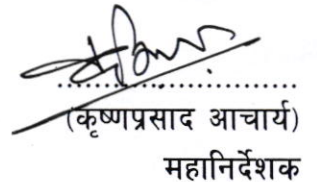 ....................................
(कृष्णप्रसाद आचार्य)
महानिर्देशक